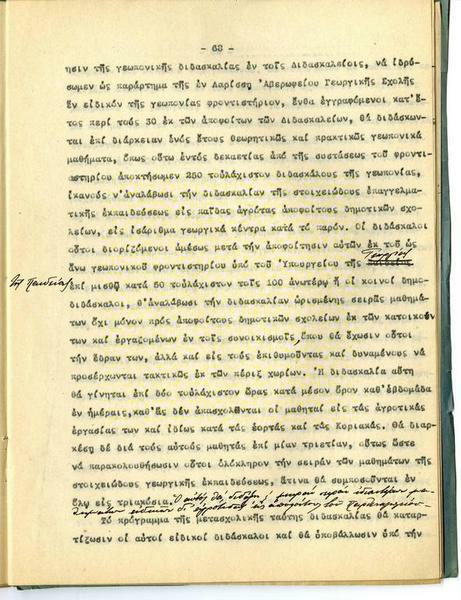 - 63 -
ησιν τῆς γεωπονικῆς διδασκαλίας ἐν τοῖς Διδασκαλείοις, νά ἱδρύ-
σωμεν ὡς παράρτημα τῆς ἐν Λαρίσσῃ Ἀβερωφείου Γεωργικῆς Σχολῆς
ἕν εἰδικόν τῆς γεωπονίας φροντιστήριον, ἔνθα ἐγγραφόμενοι κατ' ἔ-
τος περί τούς 30 ἐκ τῶν ἀποφοίτων τῶν Διδασκαλείων, θά διδάσκων-
ται ἐπί διάρκειαν ἑνός ἔτους θεωρητικῶς καί πρακτικῶς γεωπονικά
μαθήματα, ὅπως οὕτω ἐντός δεκαετίας ἀπό τῆς συστάσεως τοῦ φροντι-
στηρίου ἀποκτήσωμεν 250 τοὐλάχιστον διδασκάλους τῆς γεωπονίας,
ἱκανούς ν' ἀναλάβωσι τήν διδασκαλίαν τῆς στοιχειώδους ἐπαγγελμα-
τικῆς ἐκπαιδεύσεως εἰς παῖδας ἀγρότας ἀποφοίτους δημοτικῶν σχο-
λείων, εἰς ἰσάριθμα γεωργικά κέντρα κατά τό παρόν. Οἱ διδάσκαλοι
οὗτοι διοριζόμενοι ἀμέσως μετά τήν ἀποφοίτησιν αὐτῶν ἐκ τοῦ ὡς
ἄνω γεωπονικοῦ φροντιστηρίου ὑπό τοῦ Ὑπουργείου τῆς Παιδείας
ἐπί μισθῷ κατά 50 τοὐλάχιστον τοῖς 100 ἀνωτέρῳ ἤ οἱ κοινοί δημο-
διδάσκαλοι, θ' ἀναλάβωσι τήν διδασκαλίαν ὡρισμένης σειρᾶς μαθημά-
των ὄχι μόνον πρός ἀποφοίτους δημοτικῶν σχολείων ἐκ τῶν κατοικούν
των καί ἐργαζομένων ἐν τοῖς συνοικισμοῖς, ὅπου θά ἔχωσιν οὗτοι
τήν ἕδραν των, ἀλλά καί εἰς τούς ἐπιθυμοῦντας καί δυναμένους νά
προσέρχωνται τακτικῶς ἐκ τῶν πέριξ χωρίων. Ἡ διδασκαλία αὕτη
θά γίνηται ἐπί δύο τοὐλάχιστον ὥρας κατά μέσον ὅρον καθ' ἑβδομάδα
ἐν ἡμέραις, καθ' ἅς δέν ἀπασχολῶνται οἱ μαθηταί εἰς τάς ἀγροτικάς
ἐργασίας των καί ἰδίως κατά τάς ἑορτάς καί τάς Κυριακάς. Θά διαρ-
κέσῃ δέ διά τούς αὐτούς μαθητάς ἐπί μίαν τριετίαν, οὕτως ὥστε
νά παρακολουθήσωσιν οὗτοι ὁλόκληρον τήν σειράν τῶν μαθημάτων τῆς
στοιχειώδους γεωργικῆς ἐκπαιδεύσεως, ἅτινα θά συμποσοῦνται ἐν
ὅλῳ εἰς τριακόσια.
Τό πρόγραμμα τῆς μετασχολικῆς ταύτης διδασκαλίας θά καταρ-
τίζωσιν οἱ αὐτοί εἰδικοί διδάσκαλοι καί θά ὑποβάλλωσιν ὑπό τήν